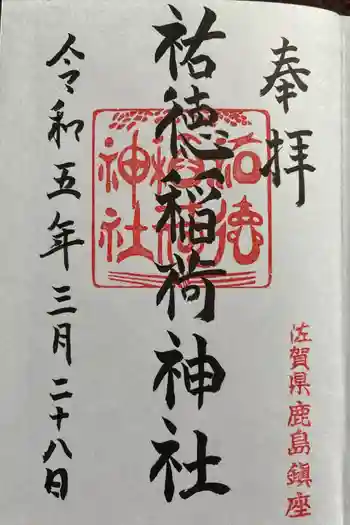 奉拝
佐賀県鹿島鎮座
祐徳稲荷神社
祐徳
稲荷
神社
令和五年三月二十八日